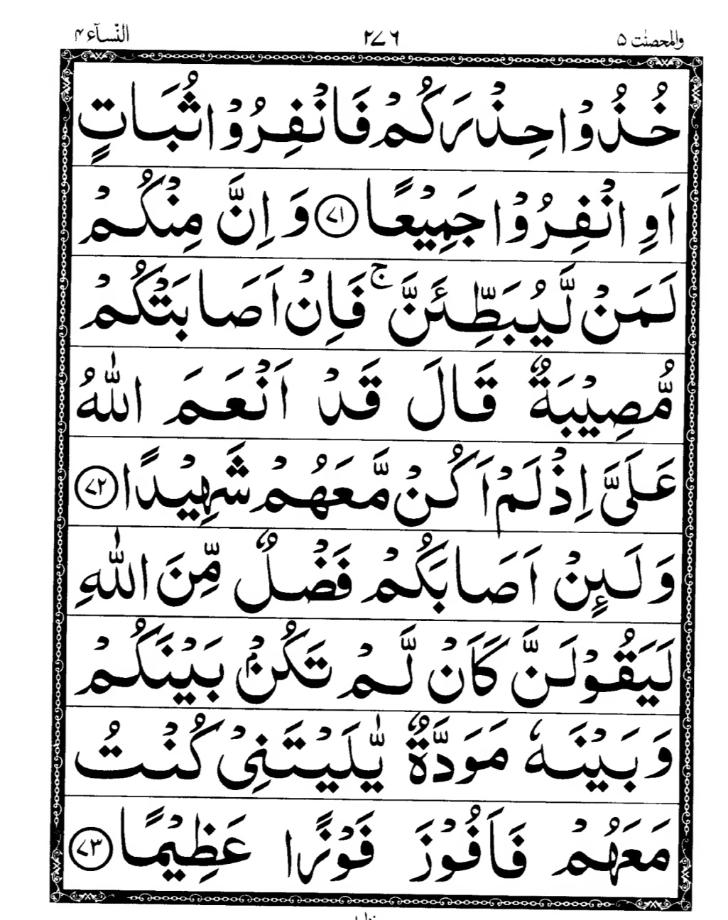 والمحصنت ۵ ۲۷۶ النّسآء ۴
خُذُوْا حِذْرَكُمْ فَانْفِرُوْا ثُبَاتٍ
اَوِ انْفِرُوْا جَمِيْعًا ﴿۷۱﴾ وَ اِنَّ مِنْكُمْ
لَمَنْ لَّيُبَطِّئَنَّ ۚ فَاِنْ اَصَابَتْكُمْ
مُّصِيْبَةٌ قَالَ قَدْ اَنْعَمَ اللّٰهُ
عَلَيَّ اِذْ لَمْ اَكُنْ مَّعَهُمْ شَهِيْدًا ﴿۷۲﴾
وَ لَىِٕنْ اَصَابَكُمْ فَضْلٌ مِّنَ اللّٰهِ
لَيَقُوْلَنَّ كَاَنْ لَّمْ تَكُنْۢ بَيْنَكُمْ
وَ بَيْنَهٗ مَوَدَّةٌ يّٰلَيْتَنِيْ كُنْتُ
مَعَهُمْ فَاَفُوْزَ فَوْزًا عَظِيْمًا ﴿۷۳﴾